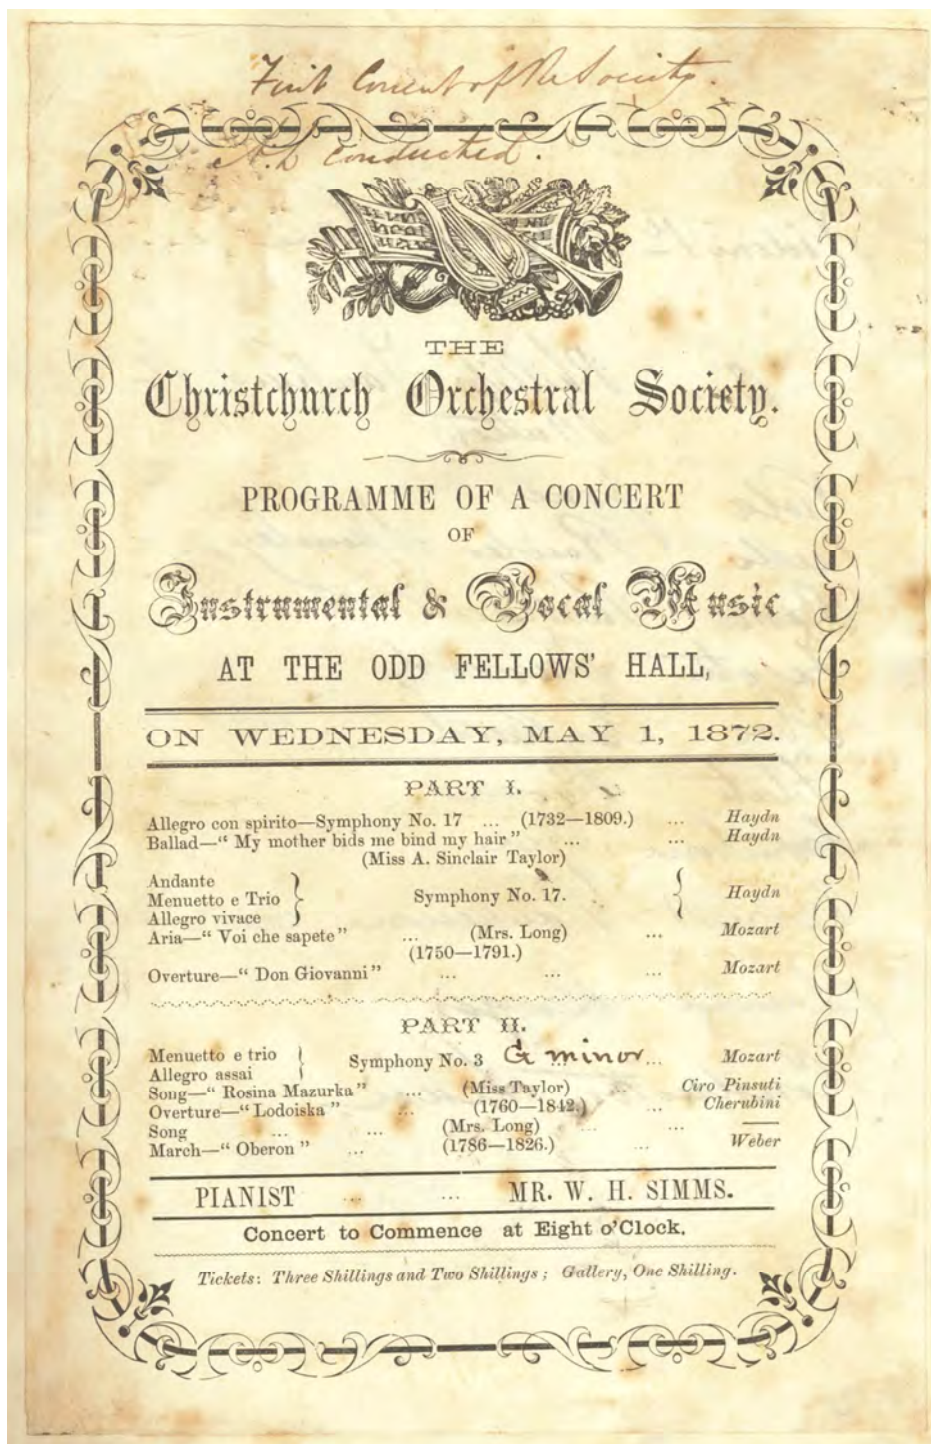 First Concert of the Society.
A.L conducted.
THE
Christchurch Orchestral Society.
PROGRAMME OF A CONCERT
OF
Instrumental & Vocal Music
AT THE ODD FELLOWS' HALL,
ON WEDNESDAY, MAY 1, 1872.
PART I.
Allegro con spirito—Symphony No. 17 ... (1732—1809.) ... Haydn
Ballad—“ My mother bids me bind my hair ” ... ... Haydn
(Miss A. Sinclair Taylor)
Andante
Menuetto e Trio } Symphony No. 17. { Haydn
Allegro vivace
Aria—“ Voi che sapete ” ... (Mrs. Long) ... Mozart
(1750—1791.)
Overture—“ Don Giovanni ” ... ... ... Mozart
PART II.
Menuetto e trio } Symphony No. 3 G minor ... Mozart
Allegro assai
Song—“ Rosina Mazurka ” ... (Miss Taylor) ... Ciro Pinsuti
Overture—“ Lodoiska ” ... (1760—1842.) ... Cherubini
Song ... ... (Mrs. Long) ... ... ——
March—“ Oberon ” ... (1786—1826.) ... Weber
PIANIST ... ... MR. W. H. SIMMS.
Concert to Commence at Eight o'Clock.
Tickets: Three Shillings and Two Shillings ; Gallery, One Shilling.